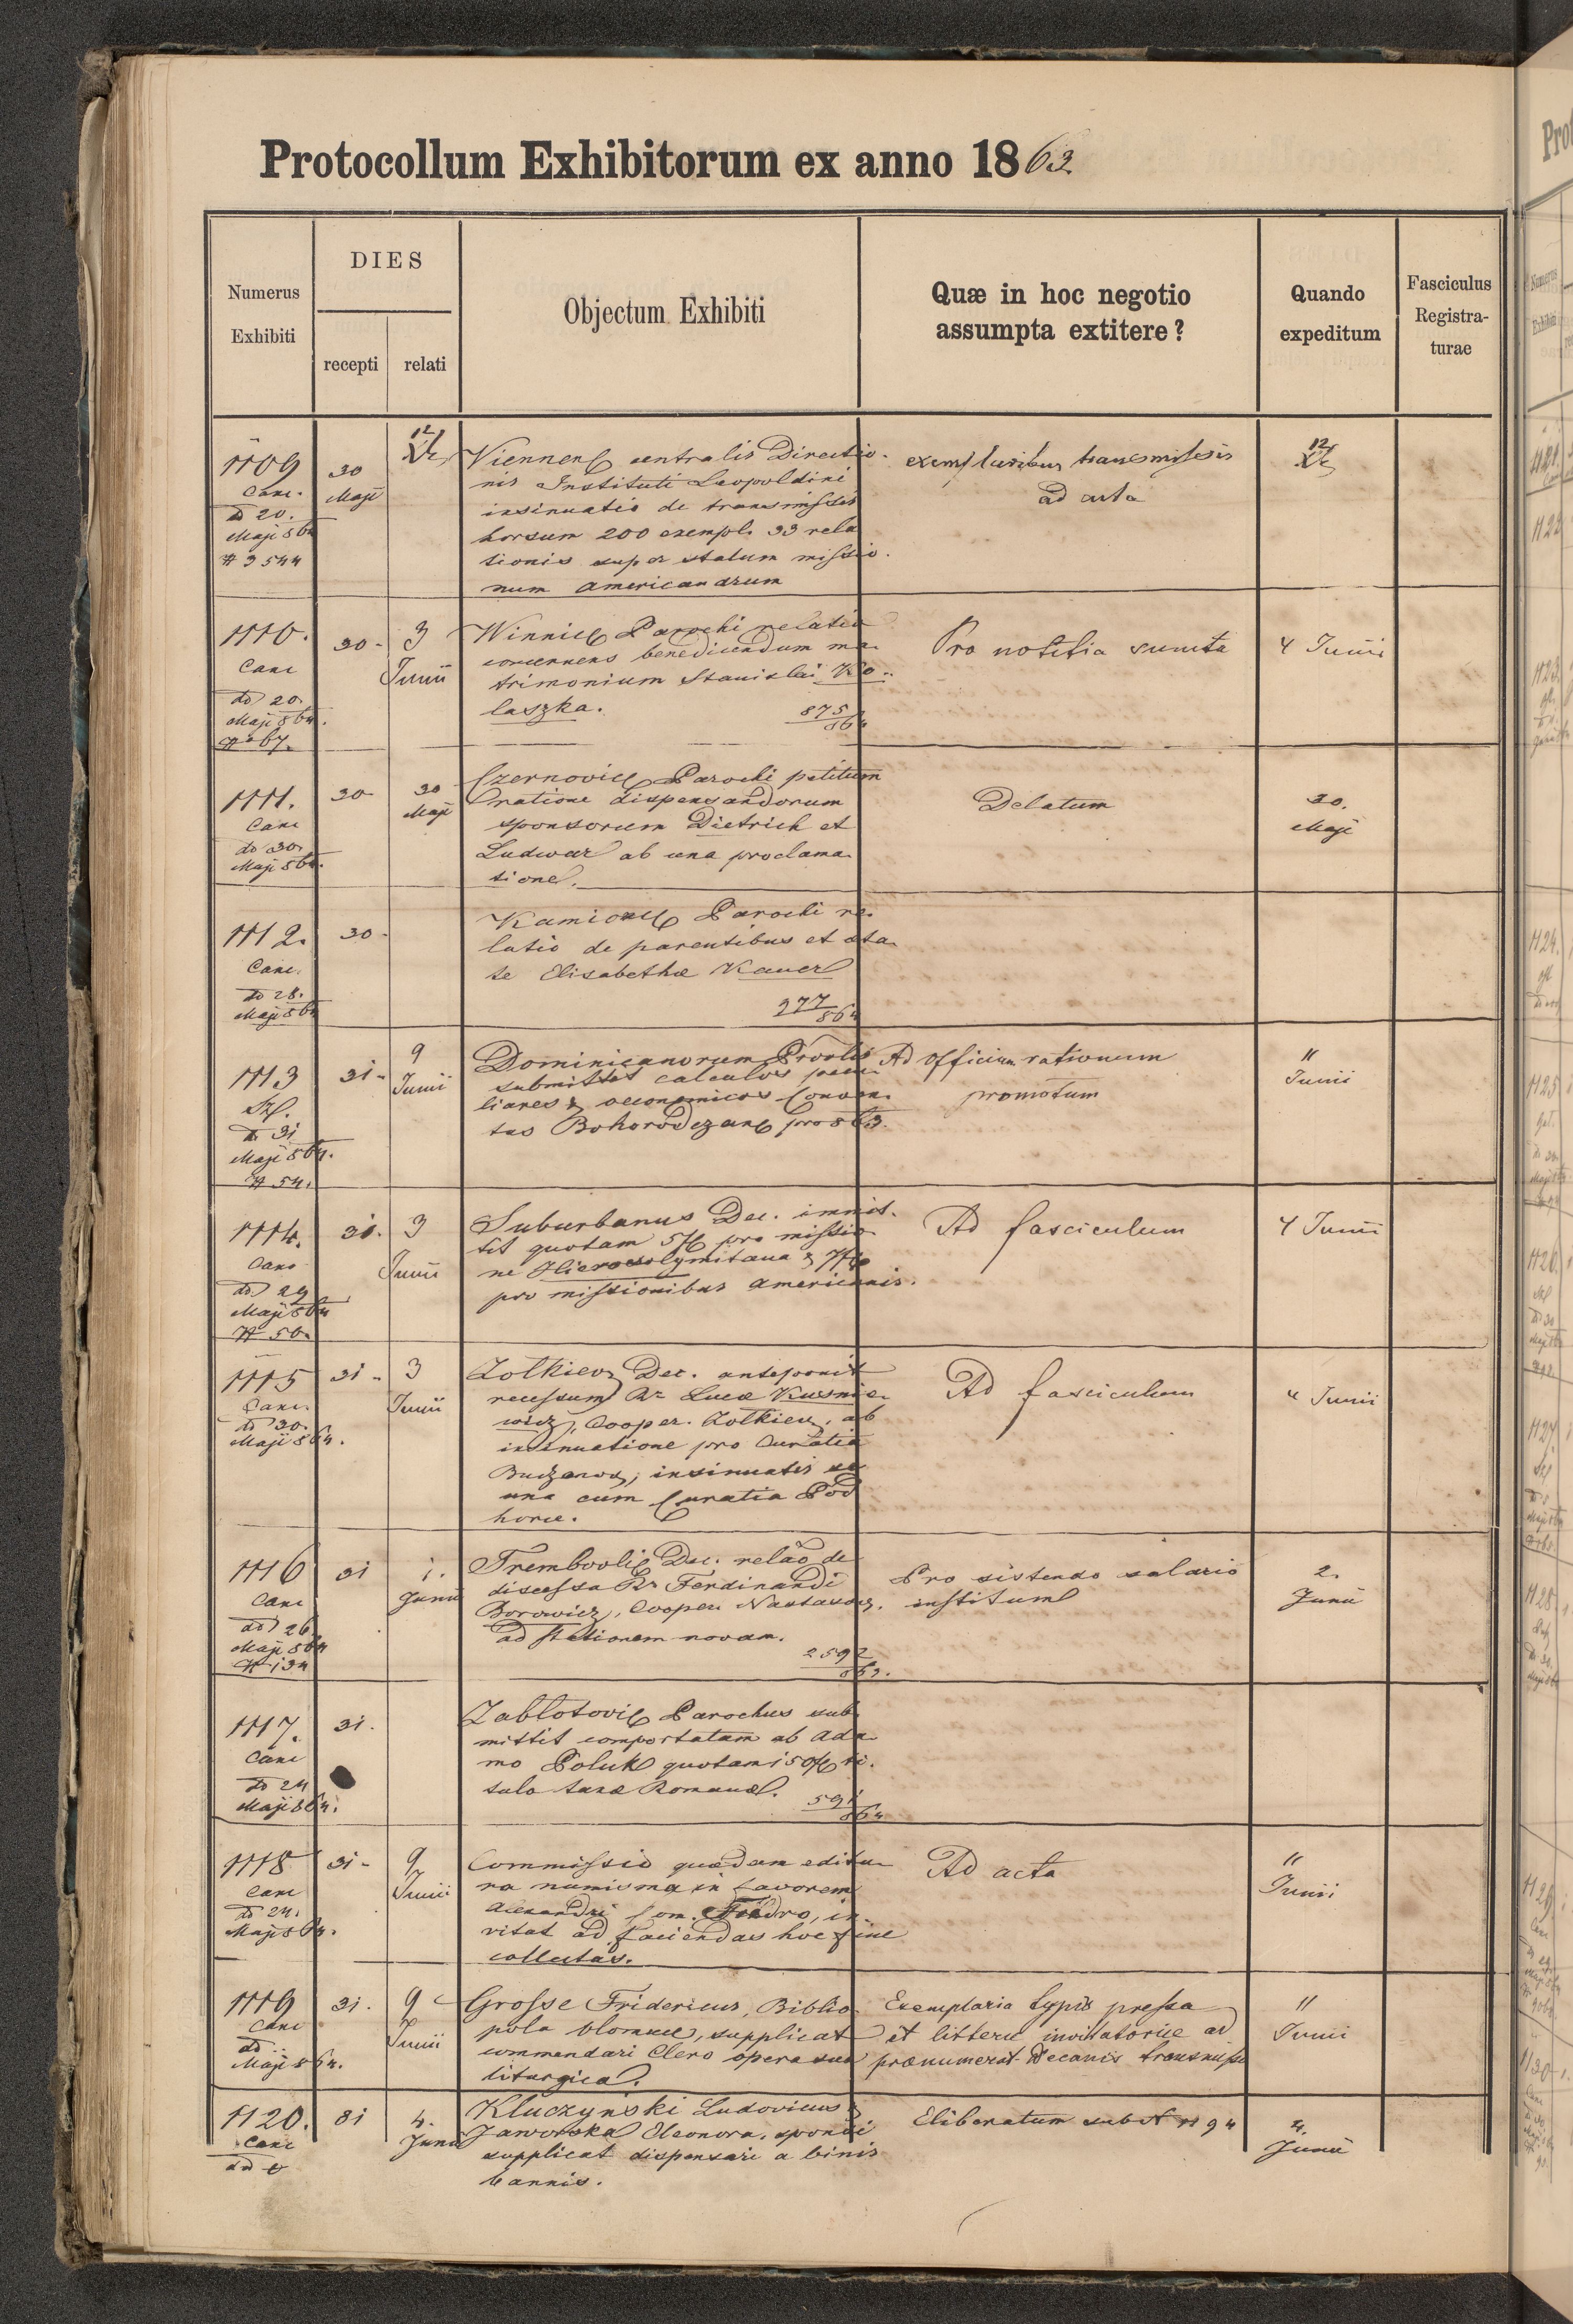 Protocollum Exhibitorum ex anno 1863
Numerus
Exhibiti
DIES
recepti
relati
Objectum Exhibiti
Quæ in hoc negotio
assumpta extitere?
Quando
expeditum
Fasciculus
Registra-
turae
1109
Canc.
dd 20.
Maji 864
# 3544
30
Maji
Viennens centralis Directio-
nis Instituti Leopoldini
insinuatio de transmissis
horsum 200 exempl. 33 rela
tionis super statum missio-
num americanarum
exemplaribus transmissis
ad acta
1110.
Canc
dd 20.
Maji 864.
# 67.
30-
3
Junii
Winnic Parochi relatio
concernens benedicendum ma-
trimonium Stanislai Ko-
laszka.
875
864
Pro notitia sumta
4 Junii
1111.
Canc
dd 30.
Maji 864.
30
30
Maji
Czernovic Parochi petitum
ratione dispensandorum
sponsorum Dietrich et
Ludwar ab una proclama-
tione.
Delatum
30.
Maji
1112.
Canc.
dd 28.
Maji 864
30-
Parochi re-
latio de parentibus et æta-
te Elisabethæ Kauer
277
864
1113
dd 31
Maji 864.
# 54.
31-
9
Junii
Dominicanorum
submittit calculos pecu-
liares & oeconomicos Conven-
tus Bohorodczan pro 863.
Ad officium rationum
promotum
"
Junii
1114.
Canc
dd 29
Maji 864
# 50.
31.
3
Junii
Suburbanus Dec. immit-
tit quotam 5 f pro missio-
ne Hierosolymitana & 7 f
pro missionibus americanis.
Ad fasciculum
4 Junii
1115
Canc.
dd 30.
Maji 864.
31-
3
Junii
Zolkiev Dec. anteponit
recessum Rr Lucæ Kusnie-
wicz, Cooper. Zolkiev, ab
insinuatione pro Curatia
insinuatis
una cum Curatia Pod
horce.
Ad fasciculum
4 Junii
1116
Canc
dd 26
Maji 864
# 134
31
1.
Junii
Trembovlic Dec. relao de
discessu Rr Ferdinandi
Borowicz, Cooper. Nastasov.
ad stationem novam.
2592
863.
Pro sistendo salario
institum
2.
Junii
1117.
Canc
dd 24
Maji 864.
31.
Zablotovic Parochus sub-
mittit comportatam ab Ada-
mo Poluk quotam 150 f ti-
tulo taxæ Romanæ.
591
864
1118
Canc
dd 24.
Maji 864.
31-
9
Junii
Commissio quædam editu-
ra numisma in favorem
Alexandri Com. Fredro, in-
vitat ad faciendas hoc fine
collectas.
Ad acta
"
Junii
1119
Canc
dd ..
Maji 864.
31.
9
Junii
Grosse Fridericus, Biblio-
pola Olomuc, supplicat
commendari Clero opera sua
liturgica.
Exemplaria typis pressa
et litteræ invitatoriæ ad
prænumerat Decanis transmissa
"
Junii
1120.
Canc
dd
31
4.
Junii
Kluczyński Ludovicus &
Jaworska Eleonora, sponsi
supplicat dispensari a binis
bannis.
Eliberatum sub # 1194
4.
Junii